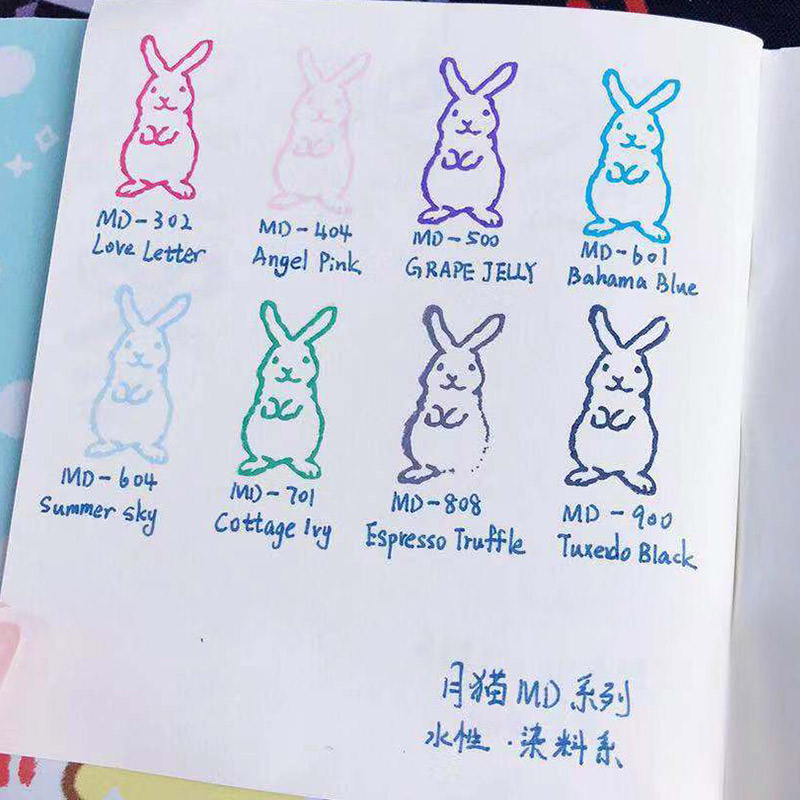 MD-302
Love Letter
MD-404
Angel Pink
MD-500
GRAPE JELLY
MD-601
Bahama Blue
MD-604
Summer sky
MD-701
Cottage Ivy
MD-808
Espresso Truffle
MD-900
Tuxedo Black
月猫MD系列
水性·染料系